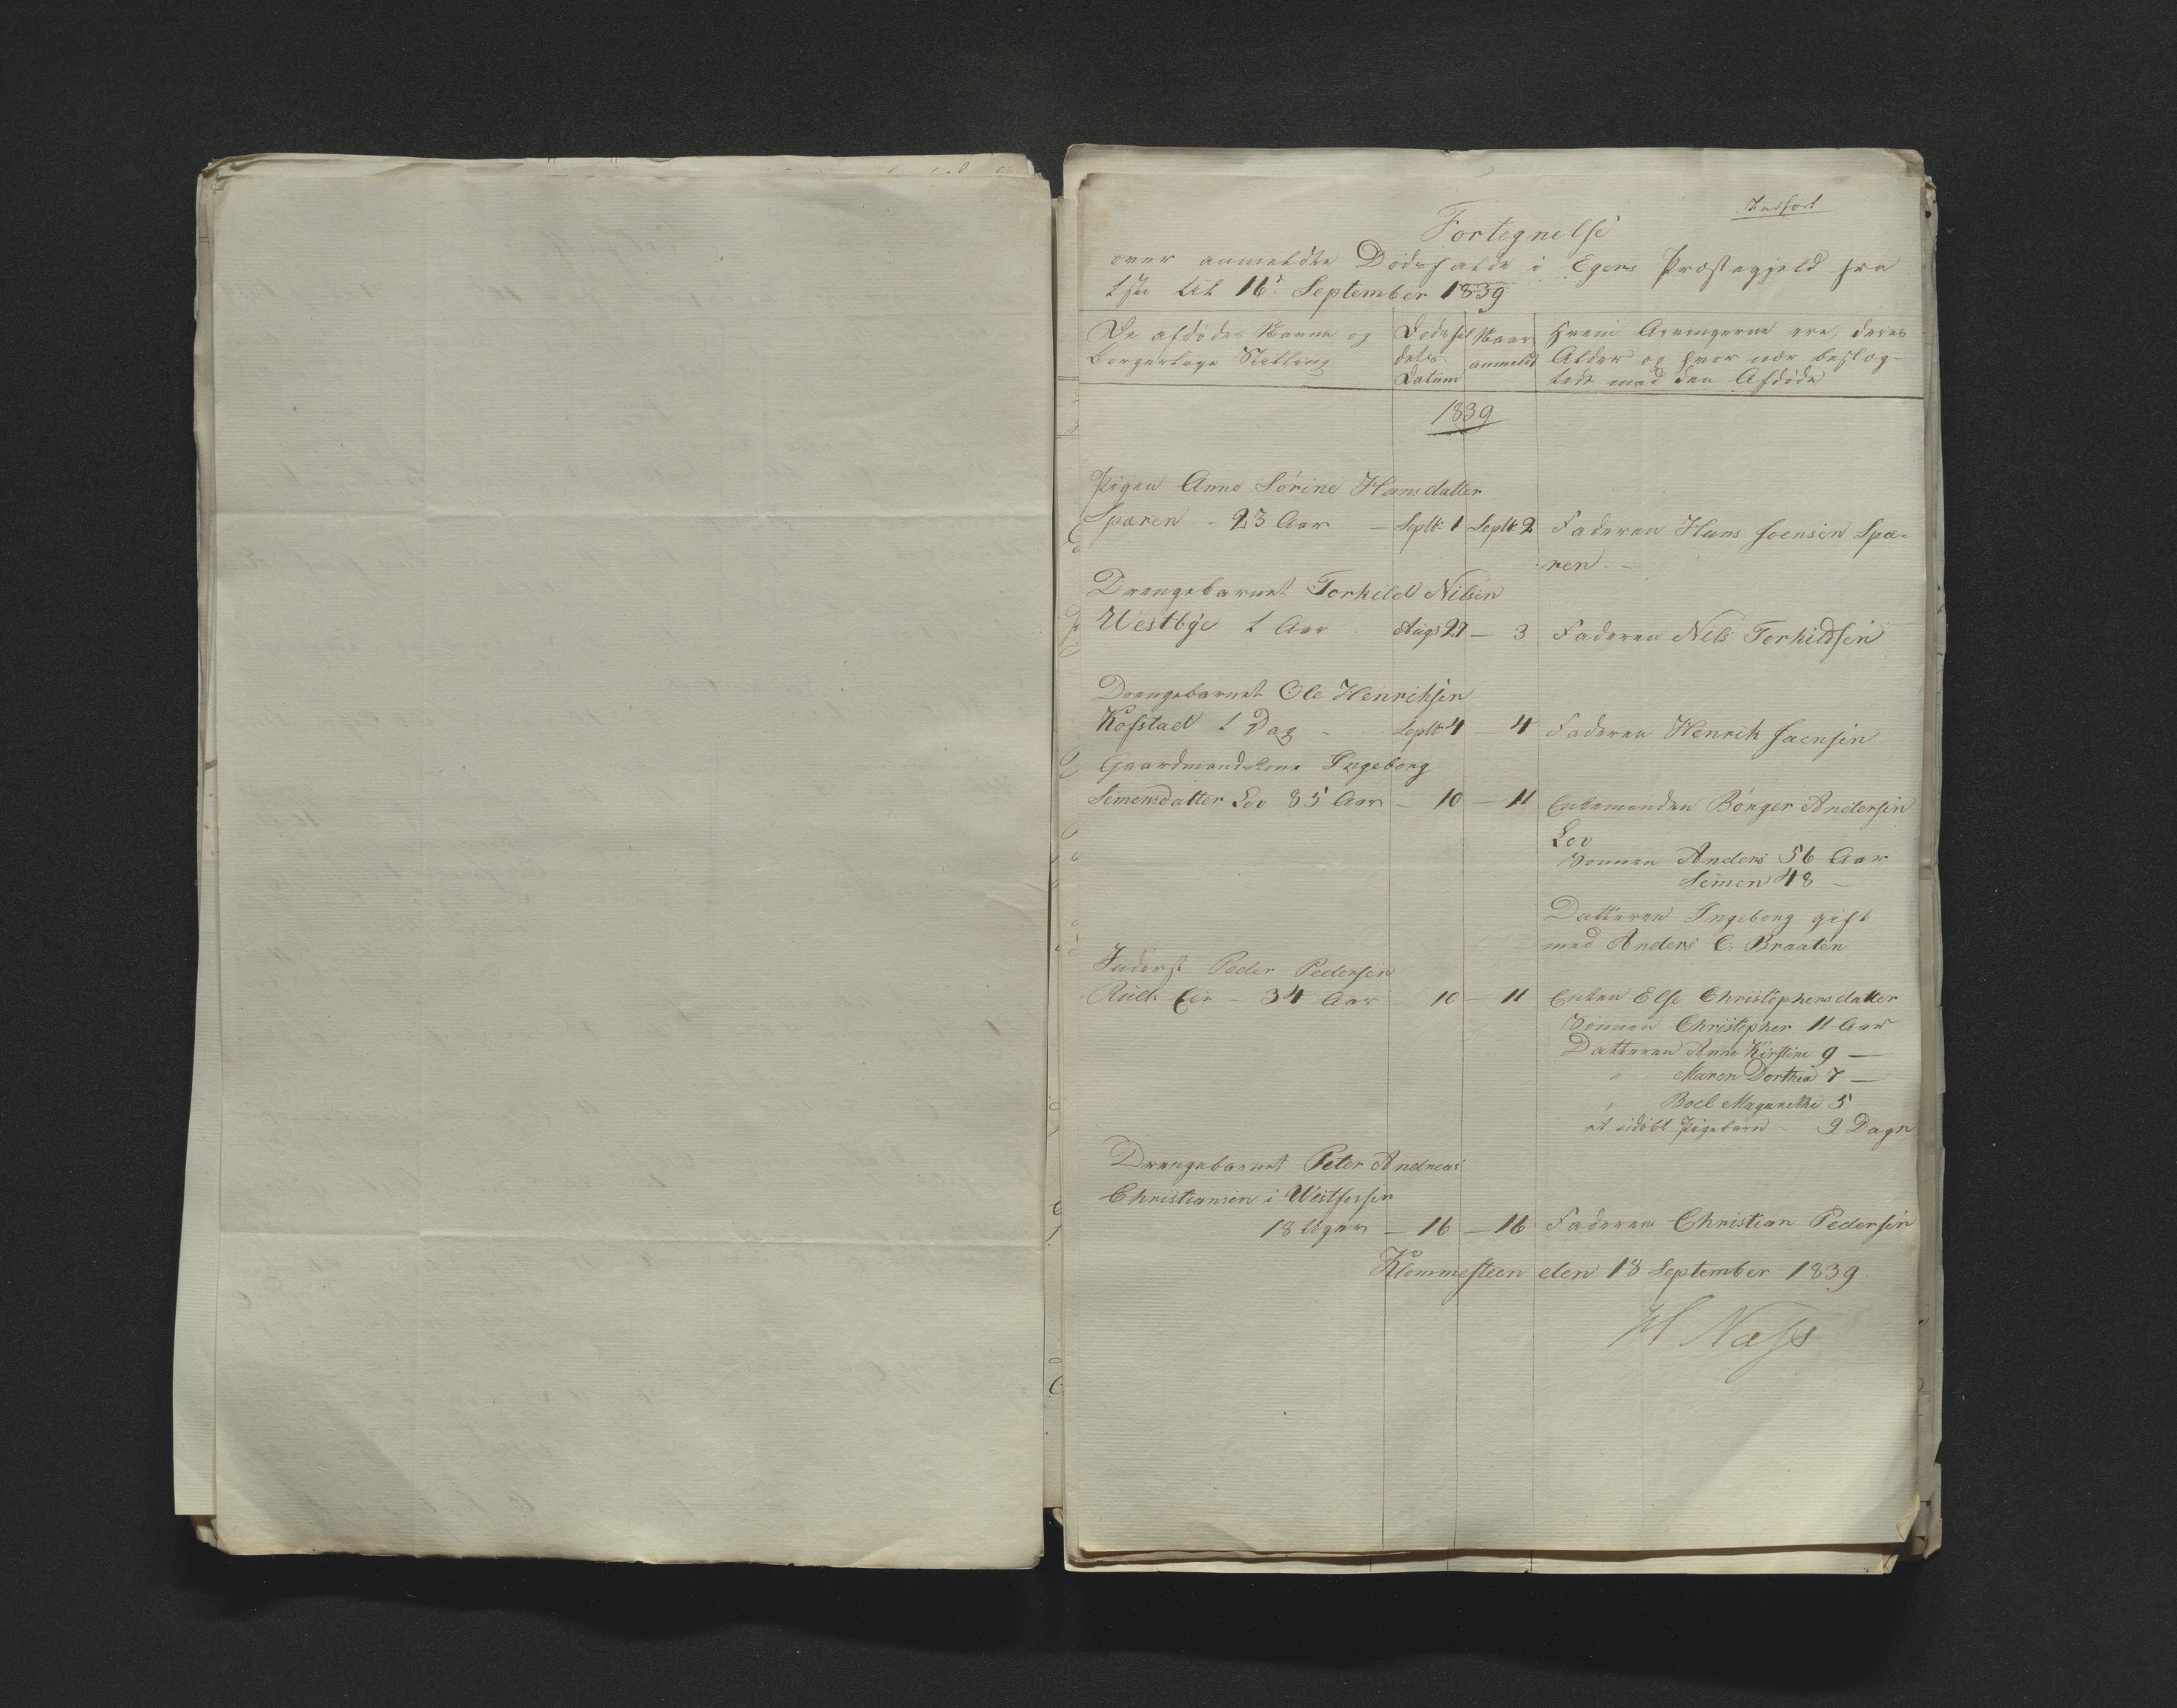 Indført
Fortegnelse
over anmeldte Dødsfalde i Egers Præstegjeld fra
1ste til 16d September 1839
De afdødes Navne og
borgerlige Stilling
Dødsfal
dets
Datum
Naar
anmeldt
Hvem Arvingerne ere, deres
Alder og hvor nær beslæg-
tede med den Afdøde
1839
Pigen Anne Sørine Hansdatter
Sparen - 23 Aar - Septb 1 Septb 2 Faderen Hans Joensen Spa-
ren -
Drengebarnet Torkild Nilsen
Westbye 1 Aar Augs 29 - 3 Faderen Nils Torkildsen
Drengebarnet Ole Henriksen
Kofstad 1 Dag - Septb 4 - 4 Faderen Henrik Jaensen
Gaardmandskone Ingeborg
Simensdatter Lov 85 Aar - 10 - 11 Enkemanden Børger Andersen
Lov
Sønnen Anders 56 Aar
Simen 48 -
Datteren Ingeborg gift
med Anders C. Braaten
Inderst Peder Pedersen
Ruds Eie - 34 Aar - 10 - 11 Enken Else Christophersdatter
Sønnen Christopher 11 Aar
Datteren Anne Kirstine 9 -
" Maren Dorthea 7 -
" Boel Magarethe 5
et udøbt Pigebarn - 9 Dage
Drengebarnet Peter Andreas
Christiansen i Westfossen
18 Uger - 16 - 16 Faderen Christian Pedersen
Klommesteen den 18 September 1839
H Nass